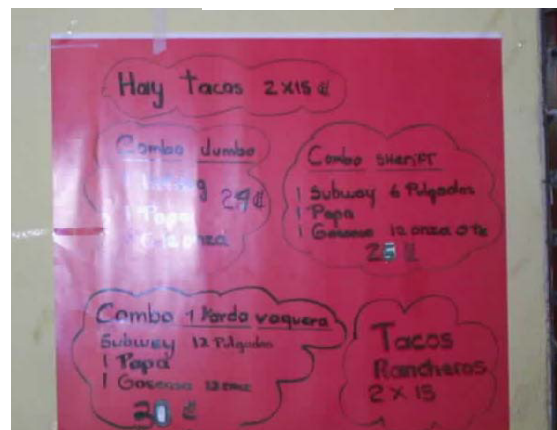 Hay Tacos 2x15 ₡
Combo Jumbo
1 Papa 24₡
12 onza
Combo SHeriFF
1 Subway 6 Pulgadas
1 Papa
1 Gaseosa 12 onza o te
25 ₡
Combo 1 Yarda vaquera
Subway 12 Pulgadas
1 Papa
1 Gaseosa 12 onz
30 ₡
Tacos
Rancheros
2 x 15